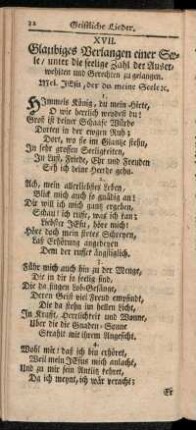 22 Geistliche Lieder.
XVII.
Glaubiges Verlangen einer See-
le / unter die seelige Zahl der Auser-
wehlten und Gerechten zu gelangen.
Mel. JEsu, der du meine Seele ꝛc.
1.
HImmels König, du mein Hirte,
O wie herrlich weydest du!
Groß ist deiner Schaafe Würde
Dorten in der ewgen Ruh;
Dort, wo sie im Glantze stehn,
In sehr grossen Seeligkeiten,
In Lust, Friede, Ehr und Freuden
Seh ich deine Heerde gehn.
2.
Ach, mein allerliebstes Leben,
Blick mich auch so gnädig an!
Dir will ich mich gantz ergeben,
Schau! ich ruffe, was ich kan:
Liebster JEsu, höre mich!
Höre doch mein stetes Schreyen,
Laß Erhörung angedeyen
Dem der ruffet ängstiglich.
3.
Führ mich auch hin zu der Menge,
Die in dir so seelig sind,
Die da singen Lob-Gesänge,
Deren Geist viel Freud empfindt,
Die da stehn im hellen Licht,
In Krafft, Herrlichkeit und Wonne,
Uber die die Gnaden-Sonne
Strahlt mit ihrem Angesicht.
4.
Wohl mir! daß ich bin erhöret,
Weil mein JEsus mich anlacht,
Und zu mir sein Antlitz kehret,
Da ich meynt, ich wär veracht:
Er